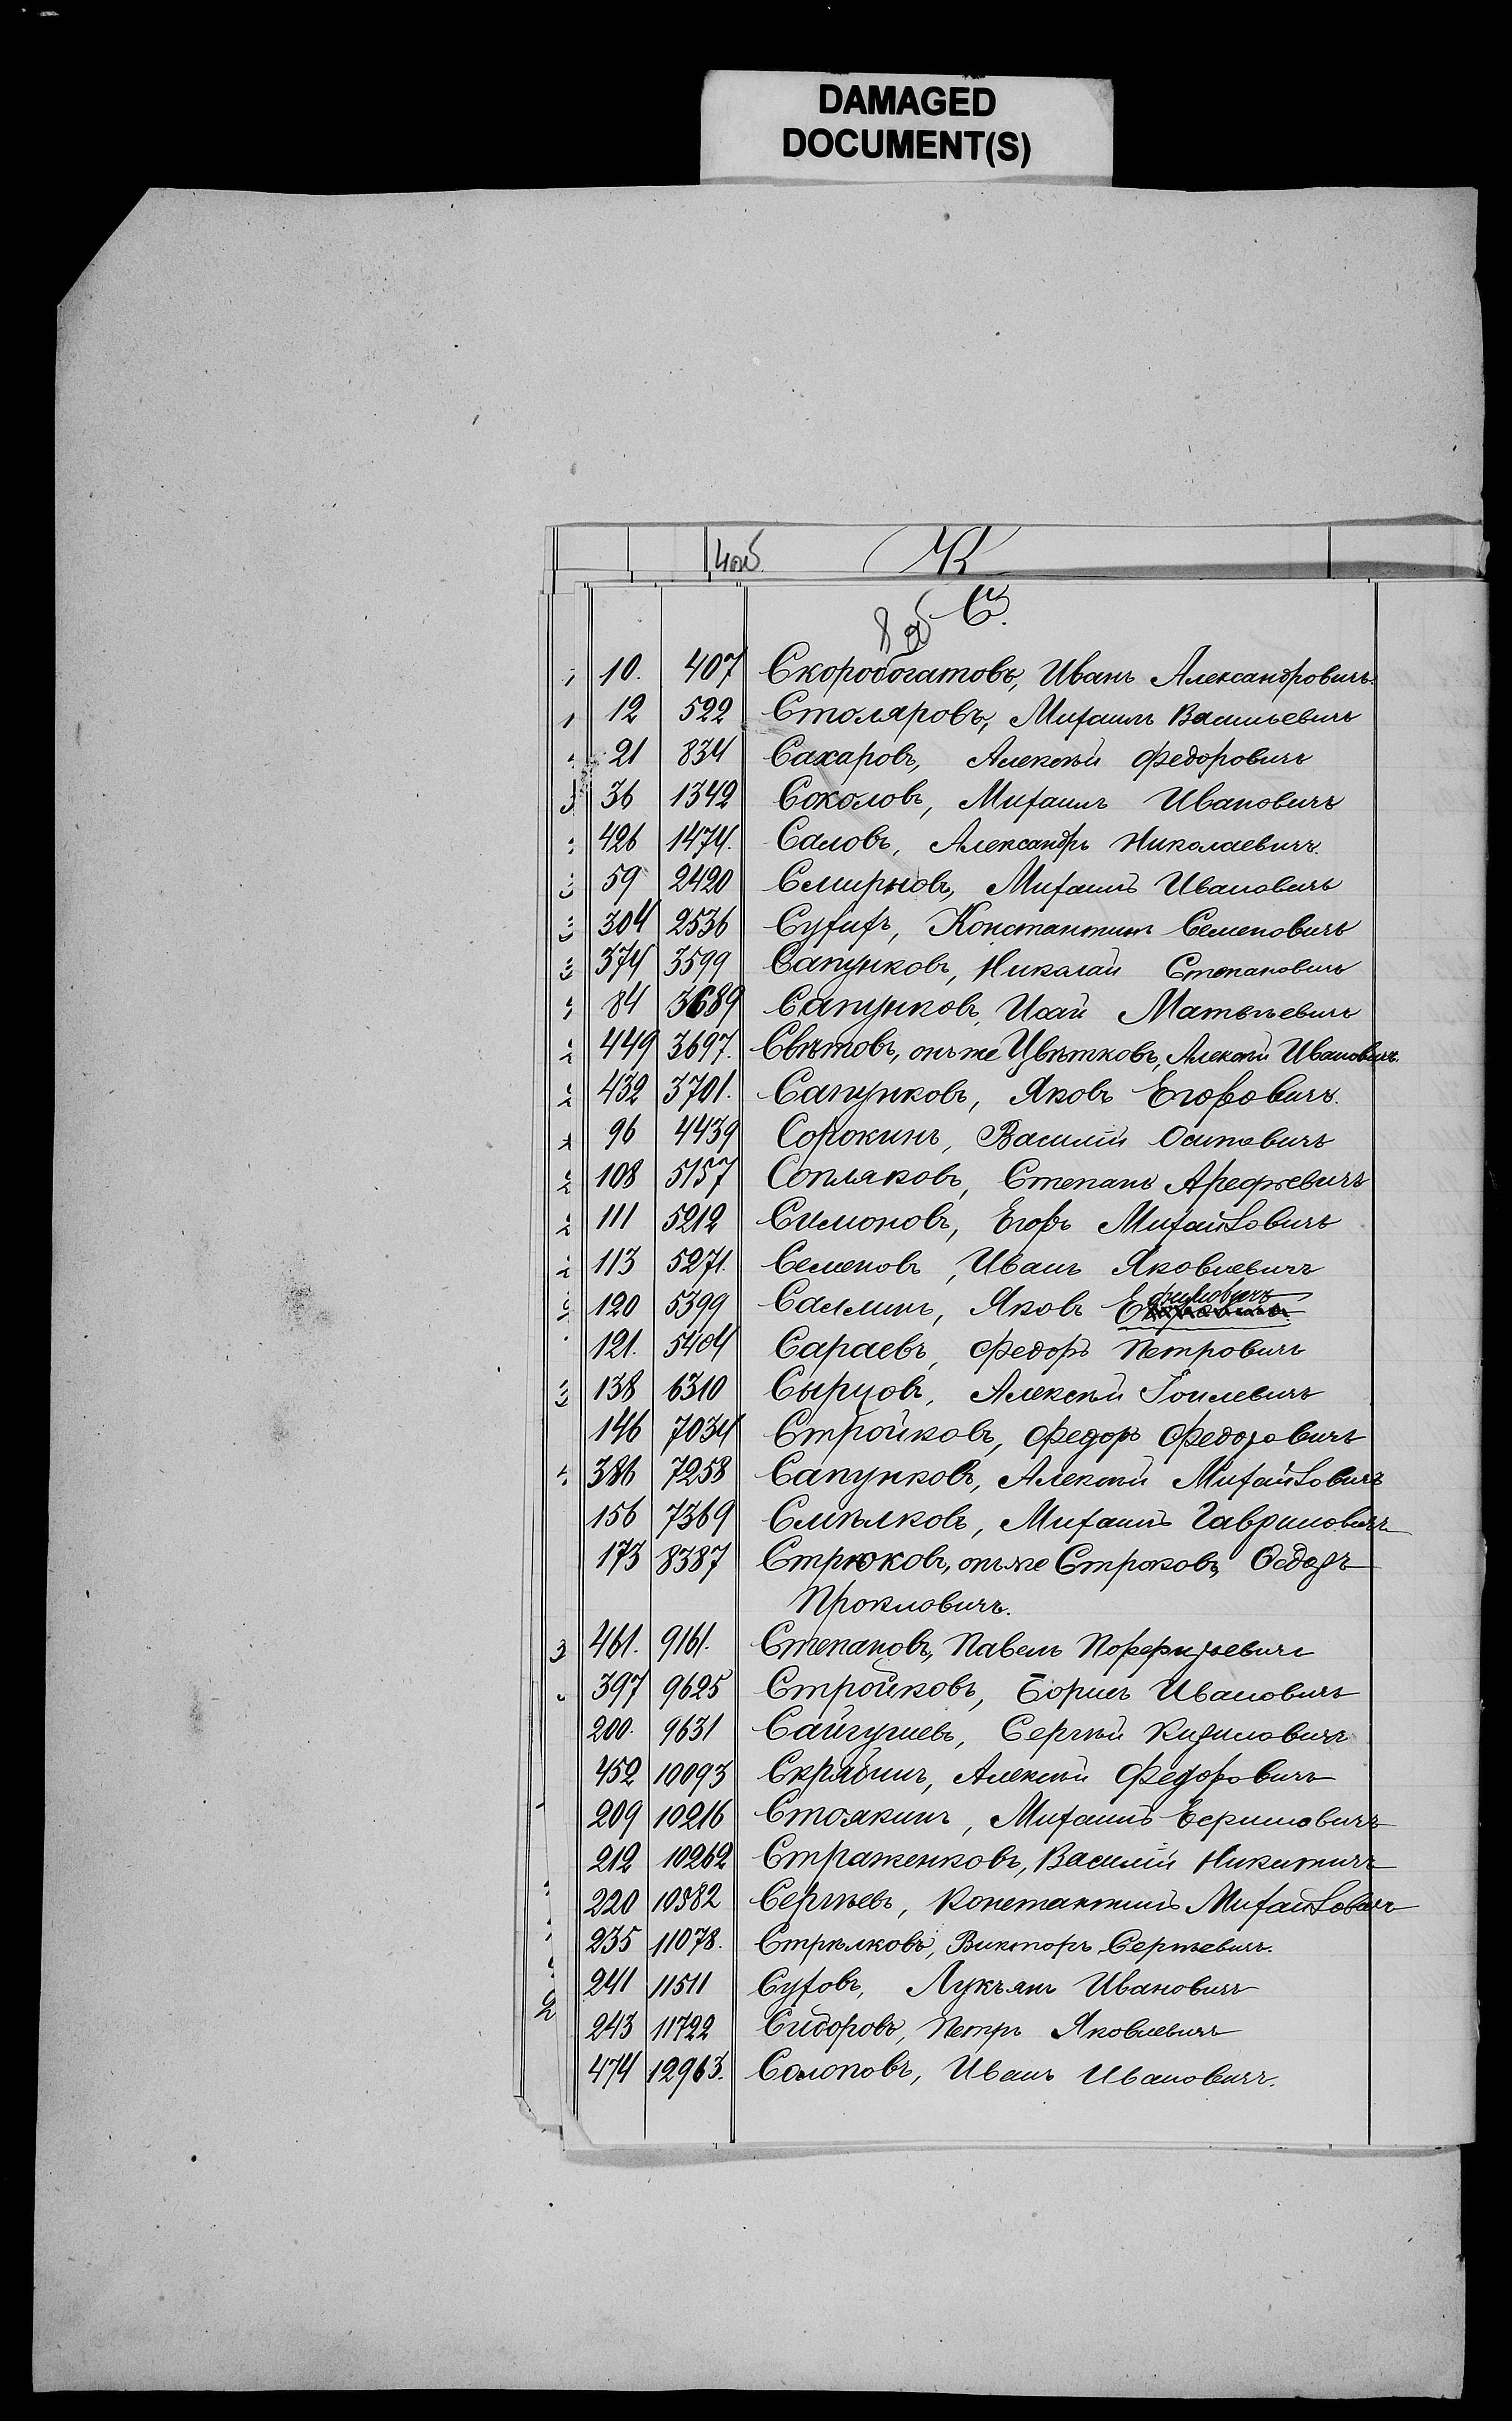 DAMAGED
DOCUMENT(S)
К
С.
10. 407 Скоробогатовъ, Иванъ Александровичъ.
12 522 Столяровъ, Михаилъ Васильевичъ
21 834 Сахаровъ, Алексѣй Федоровичъ
36 1342 Соколовъ, Михаилъ Ивановичъ
426 1474. Саловъ, Александръ Николаевичъ.
59 2420 Смирновъ, Михаилъ Ивановичъ
304 2536 Сухихъ, Константинъ Семеновичъ
374 3599 Сапунковъ, Николай Степановичъ
84 3689 Сапунковъ, Исай Матвѣевичъ
449 3697. Свѣтовъ, онъ же Цвѣтковъ, Алексѣй Ивановичъ.
432 3701. Сапунковъ, Яковъ Егоровичъ.
96 4439 Сорокинъ, Василій Осиповичъ
108 5157 Сопляковъ, Степанъ Арефьевичъ
111 5212 Симоновъ, Егоръ Михайловичъ
113 5271. Семеновъ, Иванъ Яковлевичъ
120 5399 Саминъ, Яковъ Ефимовичъ
121. 5404 Сараевъ, Федоръ Петровичъ
138 6310 Сырцовъ, Алексѣй Іоилевичъ
146 7034 Стройковъ, Федоръ Федоровичъ
386 7258 Сапунковъ, Алексѣй Михайловичъ
156 7369 Смѣлковъ, Михаилъ Гавриловичъ
173 8387 Стрюковъ, онъ же Строковъ, Ѳедоръ
Прокловичъ.
461. 9161. Степановъ, Павелъ Порфирьевичъ
397 9625 Стройковъ, Борисъ Ивановичъ
200. 9631 Сайгушевъ, Сергѣй Кириловичъ
452 10093 Скрябинъ, Алексѣй Федоровичъ
209 10216 Стоякинъ, Михаилъ Ефимовичъ
212 10262 Страженковъ, Василій Никитичъ
220 10582 Сергѣевъ, Константинъ Михайловичъ
235 11078. Стрѣлковъ, Викторъ Сергѣевичъ.
241 11511 Суховъ, Лукъянъ Ивановичъ
243 11722 Сидоровъ, Петръ Яковлевичъ
474 12963. Солоповъ, Иванъ Ивановичъ.